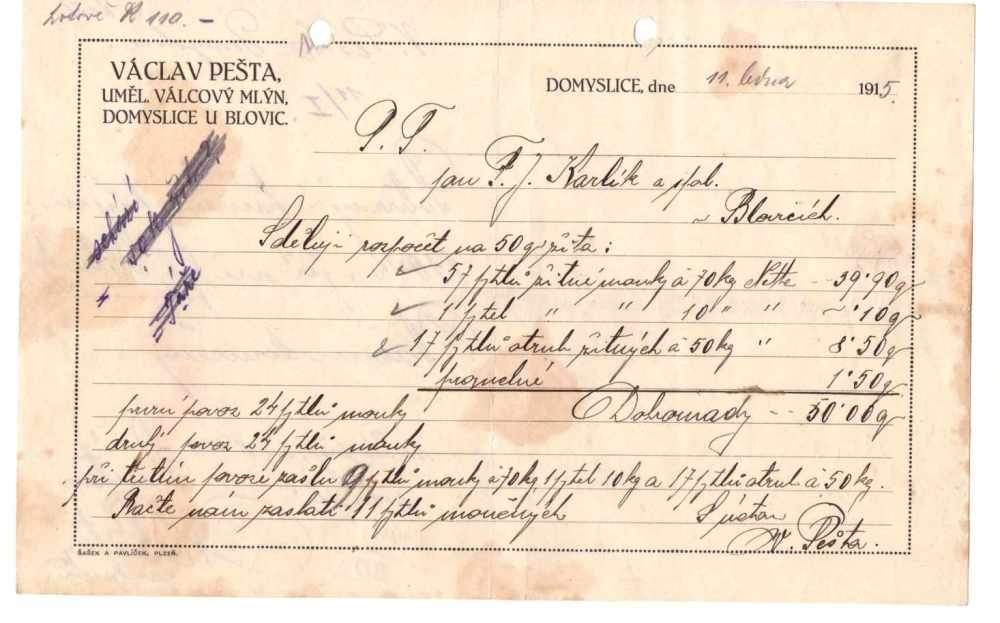 hotově K 110.–
VÁCLAV PEŠTA,
UMĚL. VÁLCOVÝ MLÝN,
DOMYSLICE U BLOVIC.
DOMYSLICE, dne 11. ledna 1915.
11/I
P. T.
pan F. J. Karlík a spol.
v Blovicích.
Sděluji rozpočet na 50 q žita:
57 pytlů žitné mouky á 70 kg Netto -- 39·90 q
1 pytel " " 10 " " -·10 q
17 pytlů otrub žitných á 50 kg " 8·50 q
1·50 q
Dohromady -- 50·00 q
první povoz 24 pytlů mouky
druhý povoz 24 pytlů mouky
při třetím povoze zašlu 9 pytlů mouky á 70 kg 1 pytel 10 kg a 17 pytlů otrub á 50 kg.
Račte nám zaslati 11 pytlů moučných
S úctou
V. Pešta.
ŠAŠEK A PAVLÍČEK, PLZEŇ.